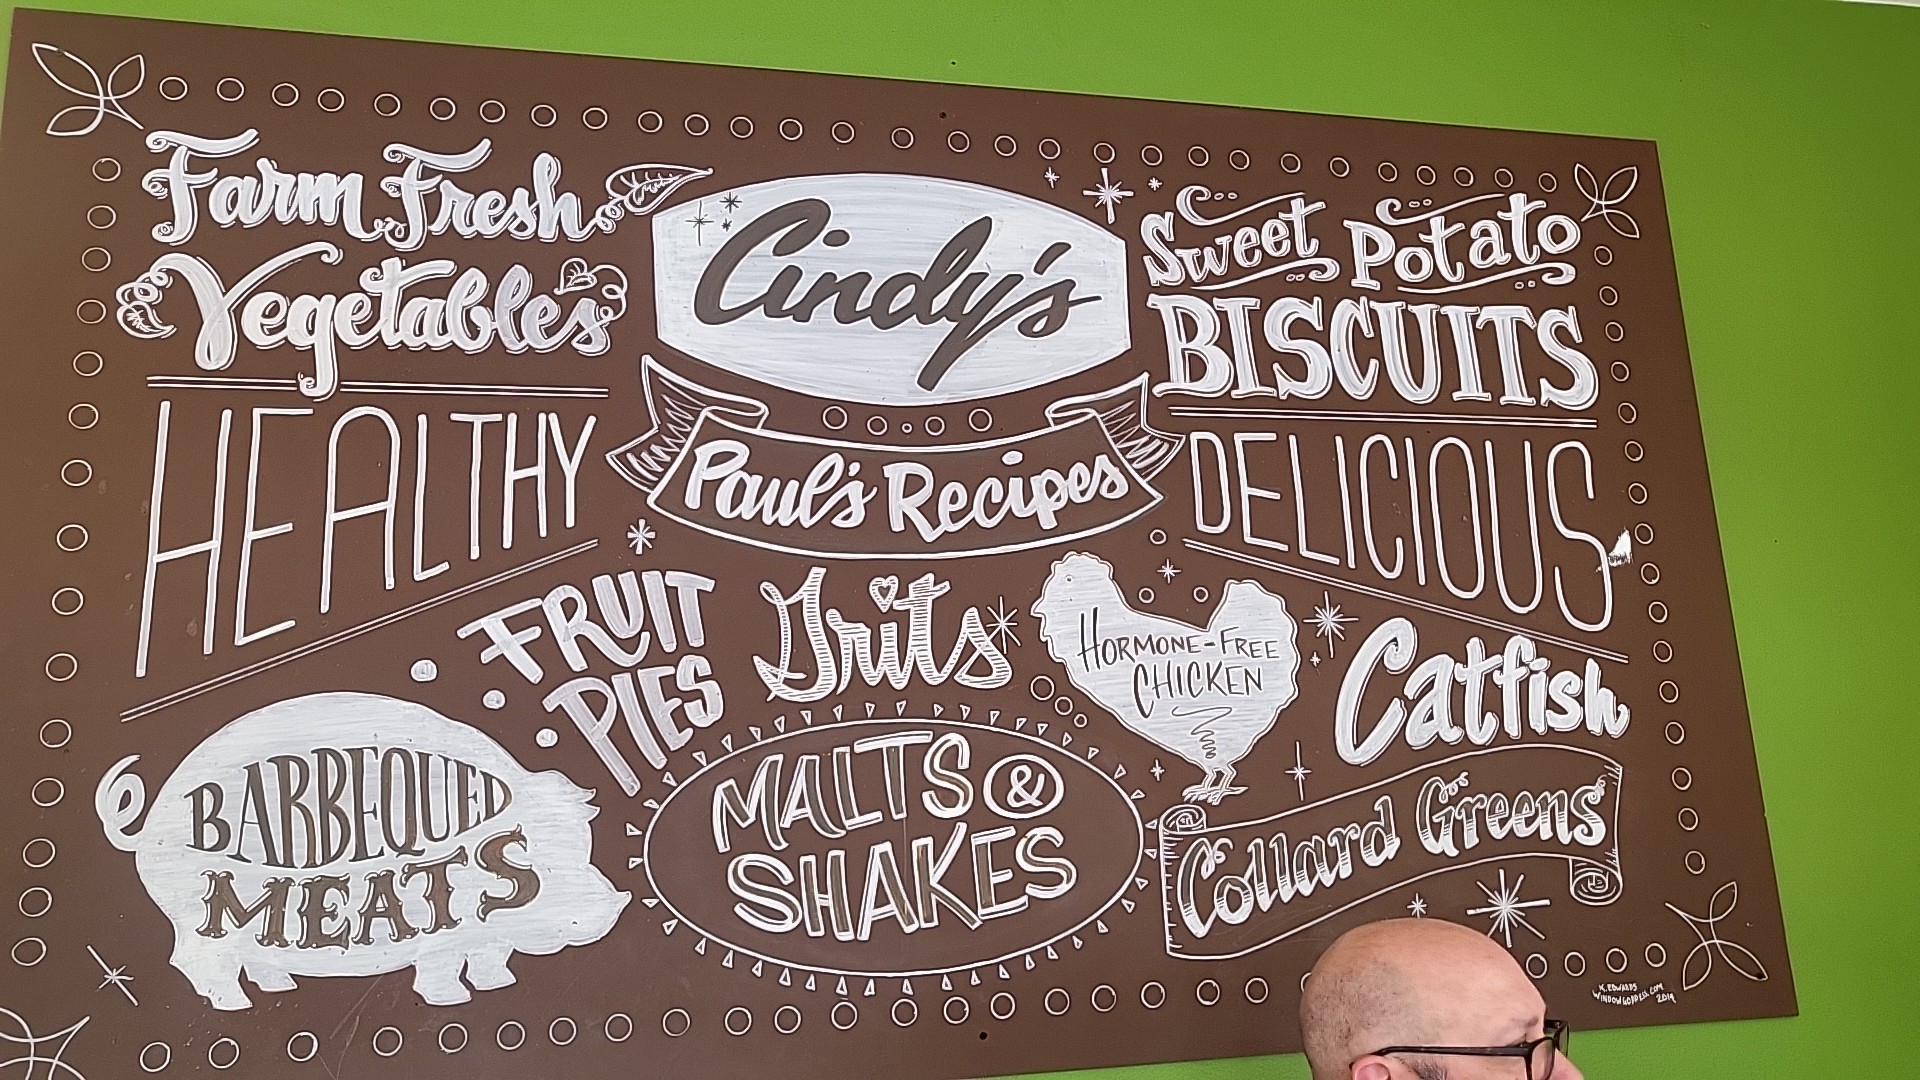 Farm Fresh
Vegetables
HEALTHY
Cindy's
Paul's Recipes
Sweet Potato
BISCUITS
DELICIOUS
FRUIT
PIES
Grits
HORMONE-FREE
CHICKEN
Catfish
BARBEQUED
MEATS
MALTS &
SHAKES
Collard Greens
K. EDWARDS
WINDOWGODDESS.COM
2019